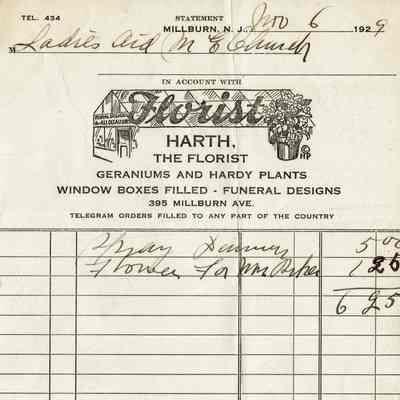 TEL. 434
STATEMENT
MILLBURN, N. J. Nov 6 1929
M Ladies Aid (M E Church
IN ACCOUNT WITH
FUNERAL DESIGNS
for ALL OCCASIONS
Florist
HARTH,
THE FLORIST
GERANIUMS AND HARDY PLANTS
WINDOW BOXES FILLED - FUNERAL DESIGNS
395 MILLBURN AVE.
TELEGRAM ORDERS FILLED TO ANY PART OF THE COUNTRY
Spray 5 00
Flowers for Mrs 1 25
6 25